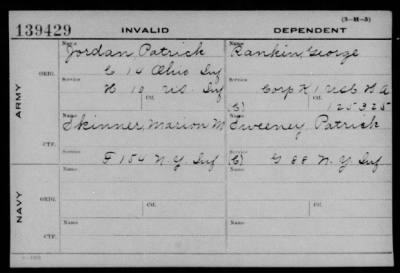 (3-M-3)
139429 INVALID DEPENDENT
Name Name
Jordan Patrick Rankin, George
ORIG. Service Ctf. Service Ctf.
C 14 Ohio Inf
H 10 U.S. Inf Corp K 1 USC H A
ARMY (C) 125325
Name Name
Skinner, Marion M Sweeney Patrick
CTF. Service Service
F 154 N.Y. Inf (C) G 88 N.Y. Inf
Name Name
ORIG. Service Ctf. Service Ctf.
NAVY
Name Name
CTF. Service Ctf. Service Ctf.